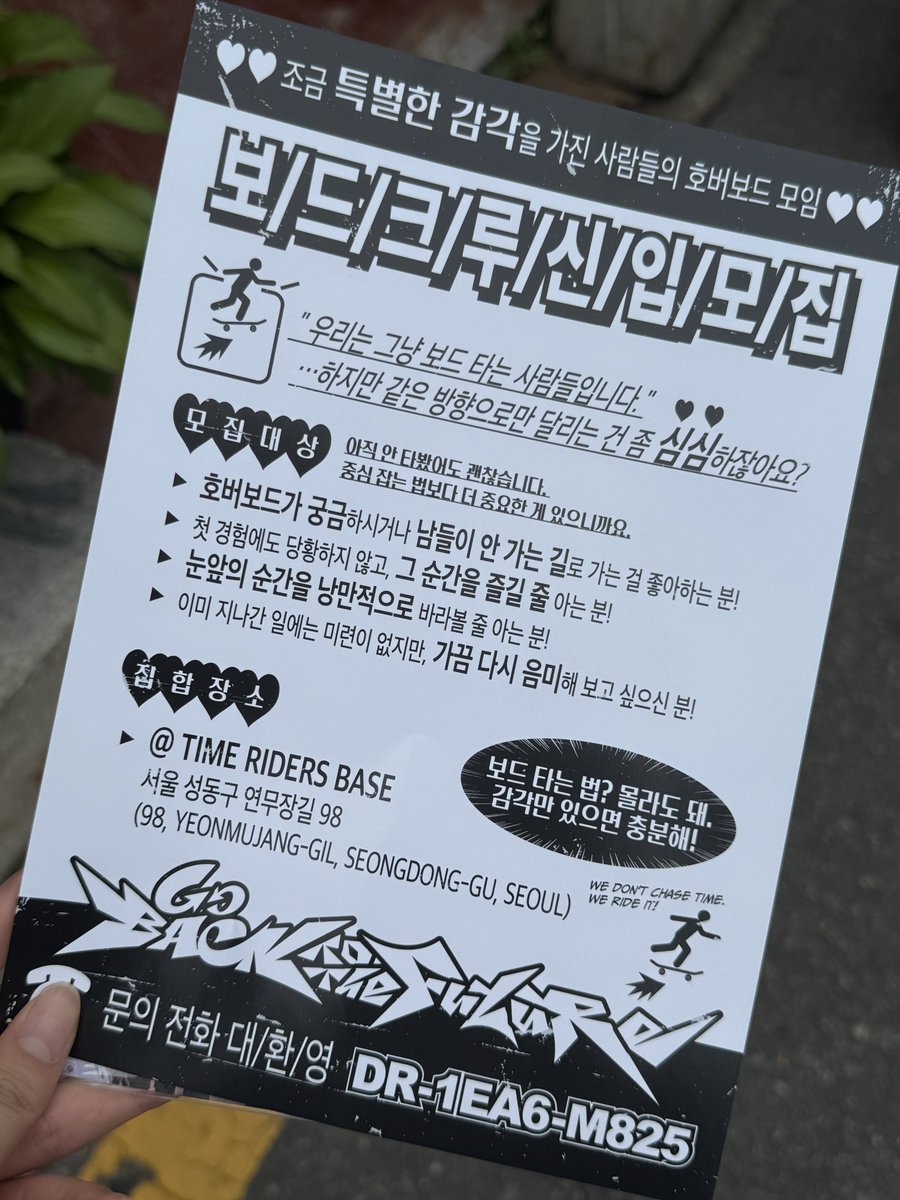 조금 특별한 감각을 가진 사람들의 호버보드 모임
보/드/크/루/신/입/모/집
"우리는 그냥 보드 타는 사람들입니다."
…하지만 같은 방향으로만 달리는 건 좀 심심하잖아요?
모집대상
아직 안 타봤어도 괜찮습니다.
중심 잡는 법보다 더 중요한 게 있으니까요.
▶ 호버보드가 궁금하시거나 남들이 안 가는 길로 가는 걸 좋아하는 분!
▶ 첫 경험에도 당황하지 않고, 그 순간을 즐길 줄 아는 분!
▶ 눈앞의 순간을 낭만적으로 바라볼 줄 아는 분!
▶ 이미 지나간 일에는 미련이 없지만, 가끔 다시 음미해 보고 싶으신 분!
집합장소
▶ @ TIME RIDERS BASE
서울 성동구 연무장길 98
(98, YEONMUJANG-GIL, SEONGDONG-GU, SEOUL)
보드 타는 법? 몰라도 돼.
감각만 있으면 충분해!
WE DON'T CHASE TIME.
WE RIDE IT!
GO
BACK TO THE FUTURE
문의 전화 대/환/영
DR-1EA6-M825